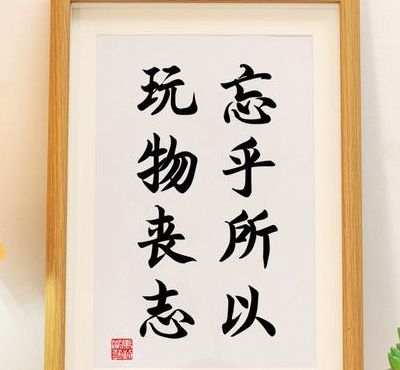 忘乎所以
玩物丧志